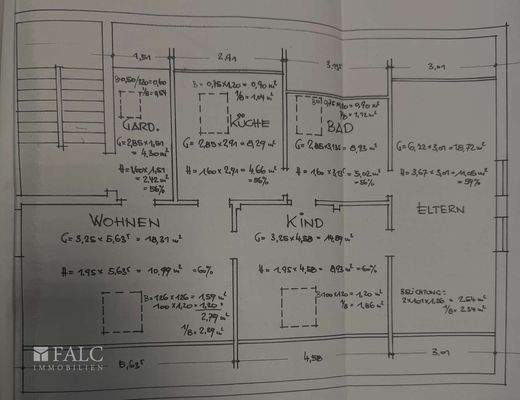 1,51
2,91
3,135
3,01
B=0,50/1,20=0,60
1/8=4,54
GARD.
G=2,85×1,51
=4,30 m²
H=1,60×1,51
=2,42 m²
=56%
B=0,75×1,20=0,90 m²
1/8=1,04 m²
KÜCHE
G=2,85×2,91=8,29 m²
H=1,60×2,91=4,66 m²
=56%
BAD
G=2,85×3,135=8,93 m²
H=1,60×3,135=5,02 m²
=56%
G=6,22×3,01=18,72 m²
H=3,67×3,01=11,05 m²
=59%
ELTERN
WOHNEN
G=3,25×5,63⁵=18,31 m²
H=1,95×5,63⁵=10,99 m²=60%
B=1,26×1,26=1,59 m²
1,00×1,20=1,20 m²
2,79 m²
1/8=2,29 m²
KIND
G=3,25×4,58=14,89 m²
H=1,95×4,58=8,93 m²=60%
B=1,00×1,20=1,20 m²
1/8=1,86 m²
BELICHTUNG:
2×1,01×1,26=2,54 m²
1/8=2,34 m²
5,63⁵
4,58
3,01
FALC
IMMOBILIEN